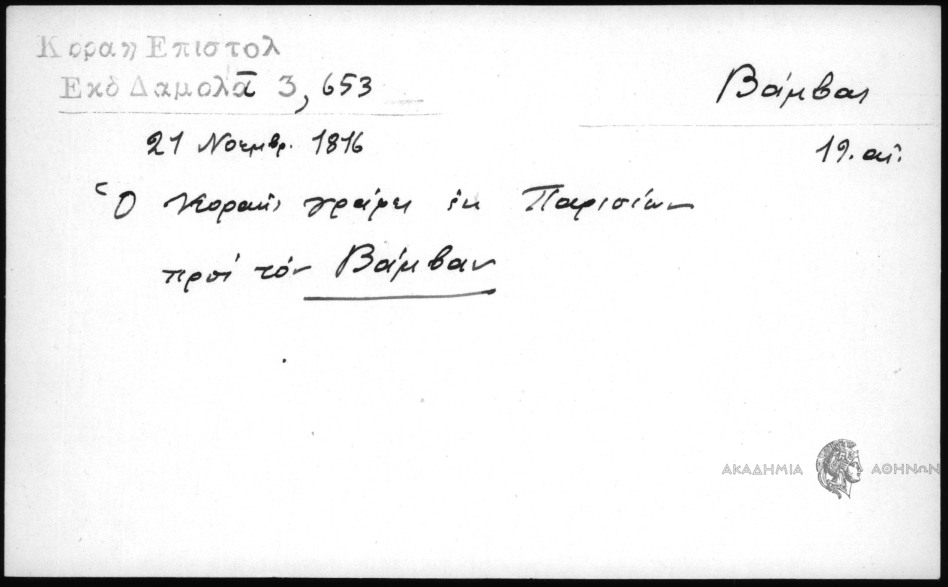 Κοραη Επιστολ
Εκδ Δαμολᾶ 3, 653
Βάμβας
21 Νοεμβρ. 1816
19. αἰ.
Ὁ Κοραῆς γράφει ἐκ Παρισίων
πρὸς τὸν Βάμβαν
ΑΚΑΔΗΜΙΑ ΑΘΗΝΩΝ